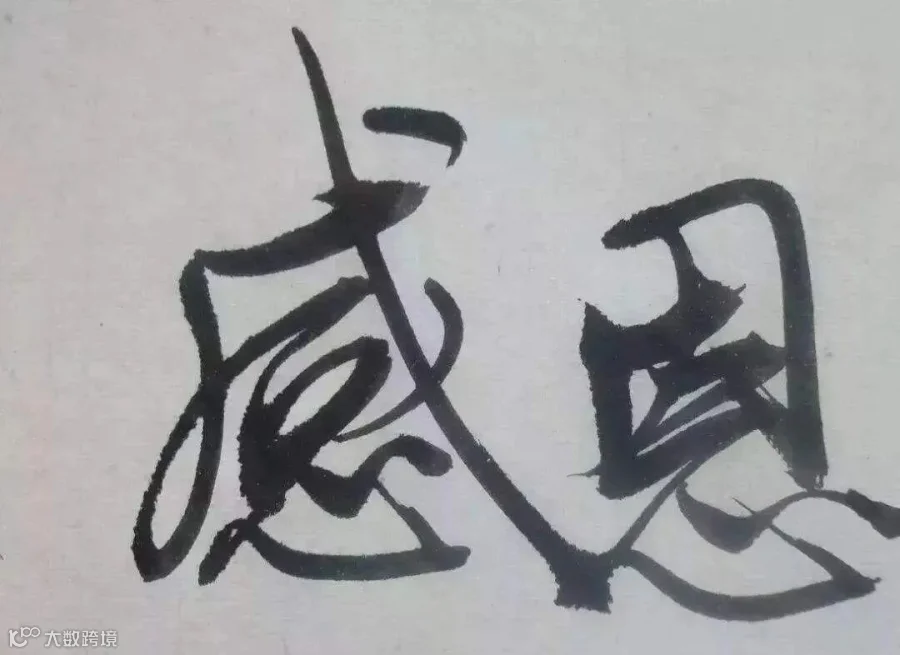 感恩
大数跨境